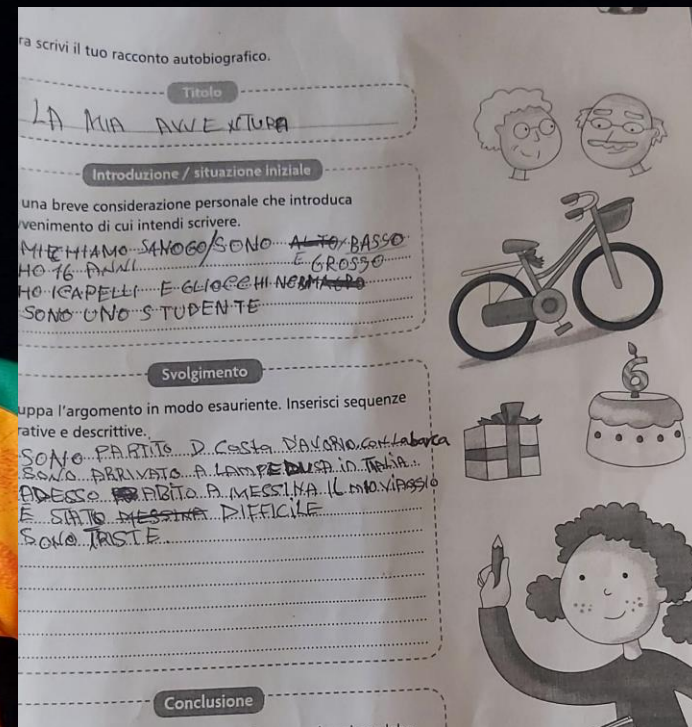 ra scrivi il tuo racconto autobiografico.
Titolo
LA MIA AVVENTURA
Introduzione / situazione iniziale
una breve considerazione personale che introduca
vvenimento di cui intendi scrivere.
MI CHIAMO SANOGO/SONO ALTO/BASSO
HO 16 ANNI E GROSSO
HO I CAPELLI E GLI OCCHI NERI MAGRO
SONO UNO STUDENTE
Svolgimento
uppa l'argomento in modo esauriente. Inserisci sequenze
rative e descrittive.
SONO PARTITO D Costa D'AVORIO con La barca
SONO ARRIVATO A LAMPEDUSA in ITALIA.
ADESSO ABITO A MESSINA IL MIO VIAGGIO
E STATO MESSINA DIFFICILE
SONO TRISTE
6
Conclusione